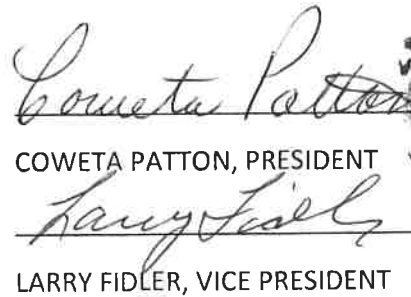 Coweta Patton
COWETA PATTON, PRESIDENT
Larry Fidler
LARRY FIDLER, VICE PRESIDENT